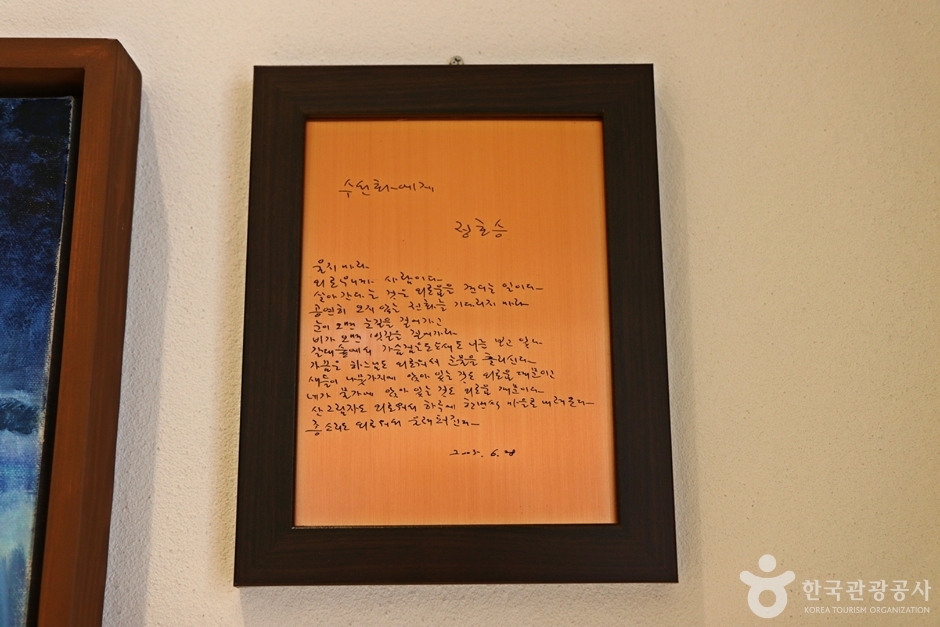 수선화에게
정호승
울지 마라
외로우니까 사람이다
살아간다는 것은 외로움을 견디는 일이다
공연히 오지 않는 전화를 기다리지 마라
눈이 오면 눈길을 걸어가고
비가 오면 빗길을 걸어가라
갈대숲에서 가슴검은도요새도 너를 보고 있다
가끔은 하느님도 외로워서 눈물을 흘리신다
새들이 나뭇가지에 앉아 있는 것도 외로움 때문이고
네가 물가에 앉아 있는 것도 외로움 때문이다
산 그림자도 외로워서 하루에 한번씩 마을로 내려온다
종소리도 외로워서 울려퍼진다
6.
한국관광공사
KOREA TOURISM ORGANIZATION